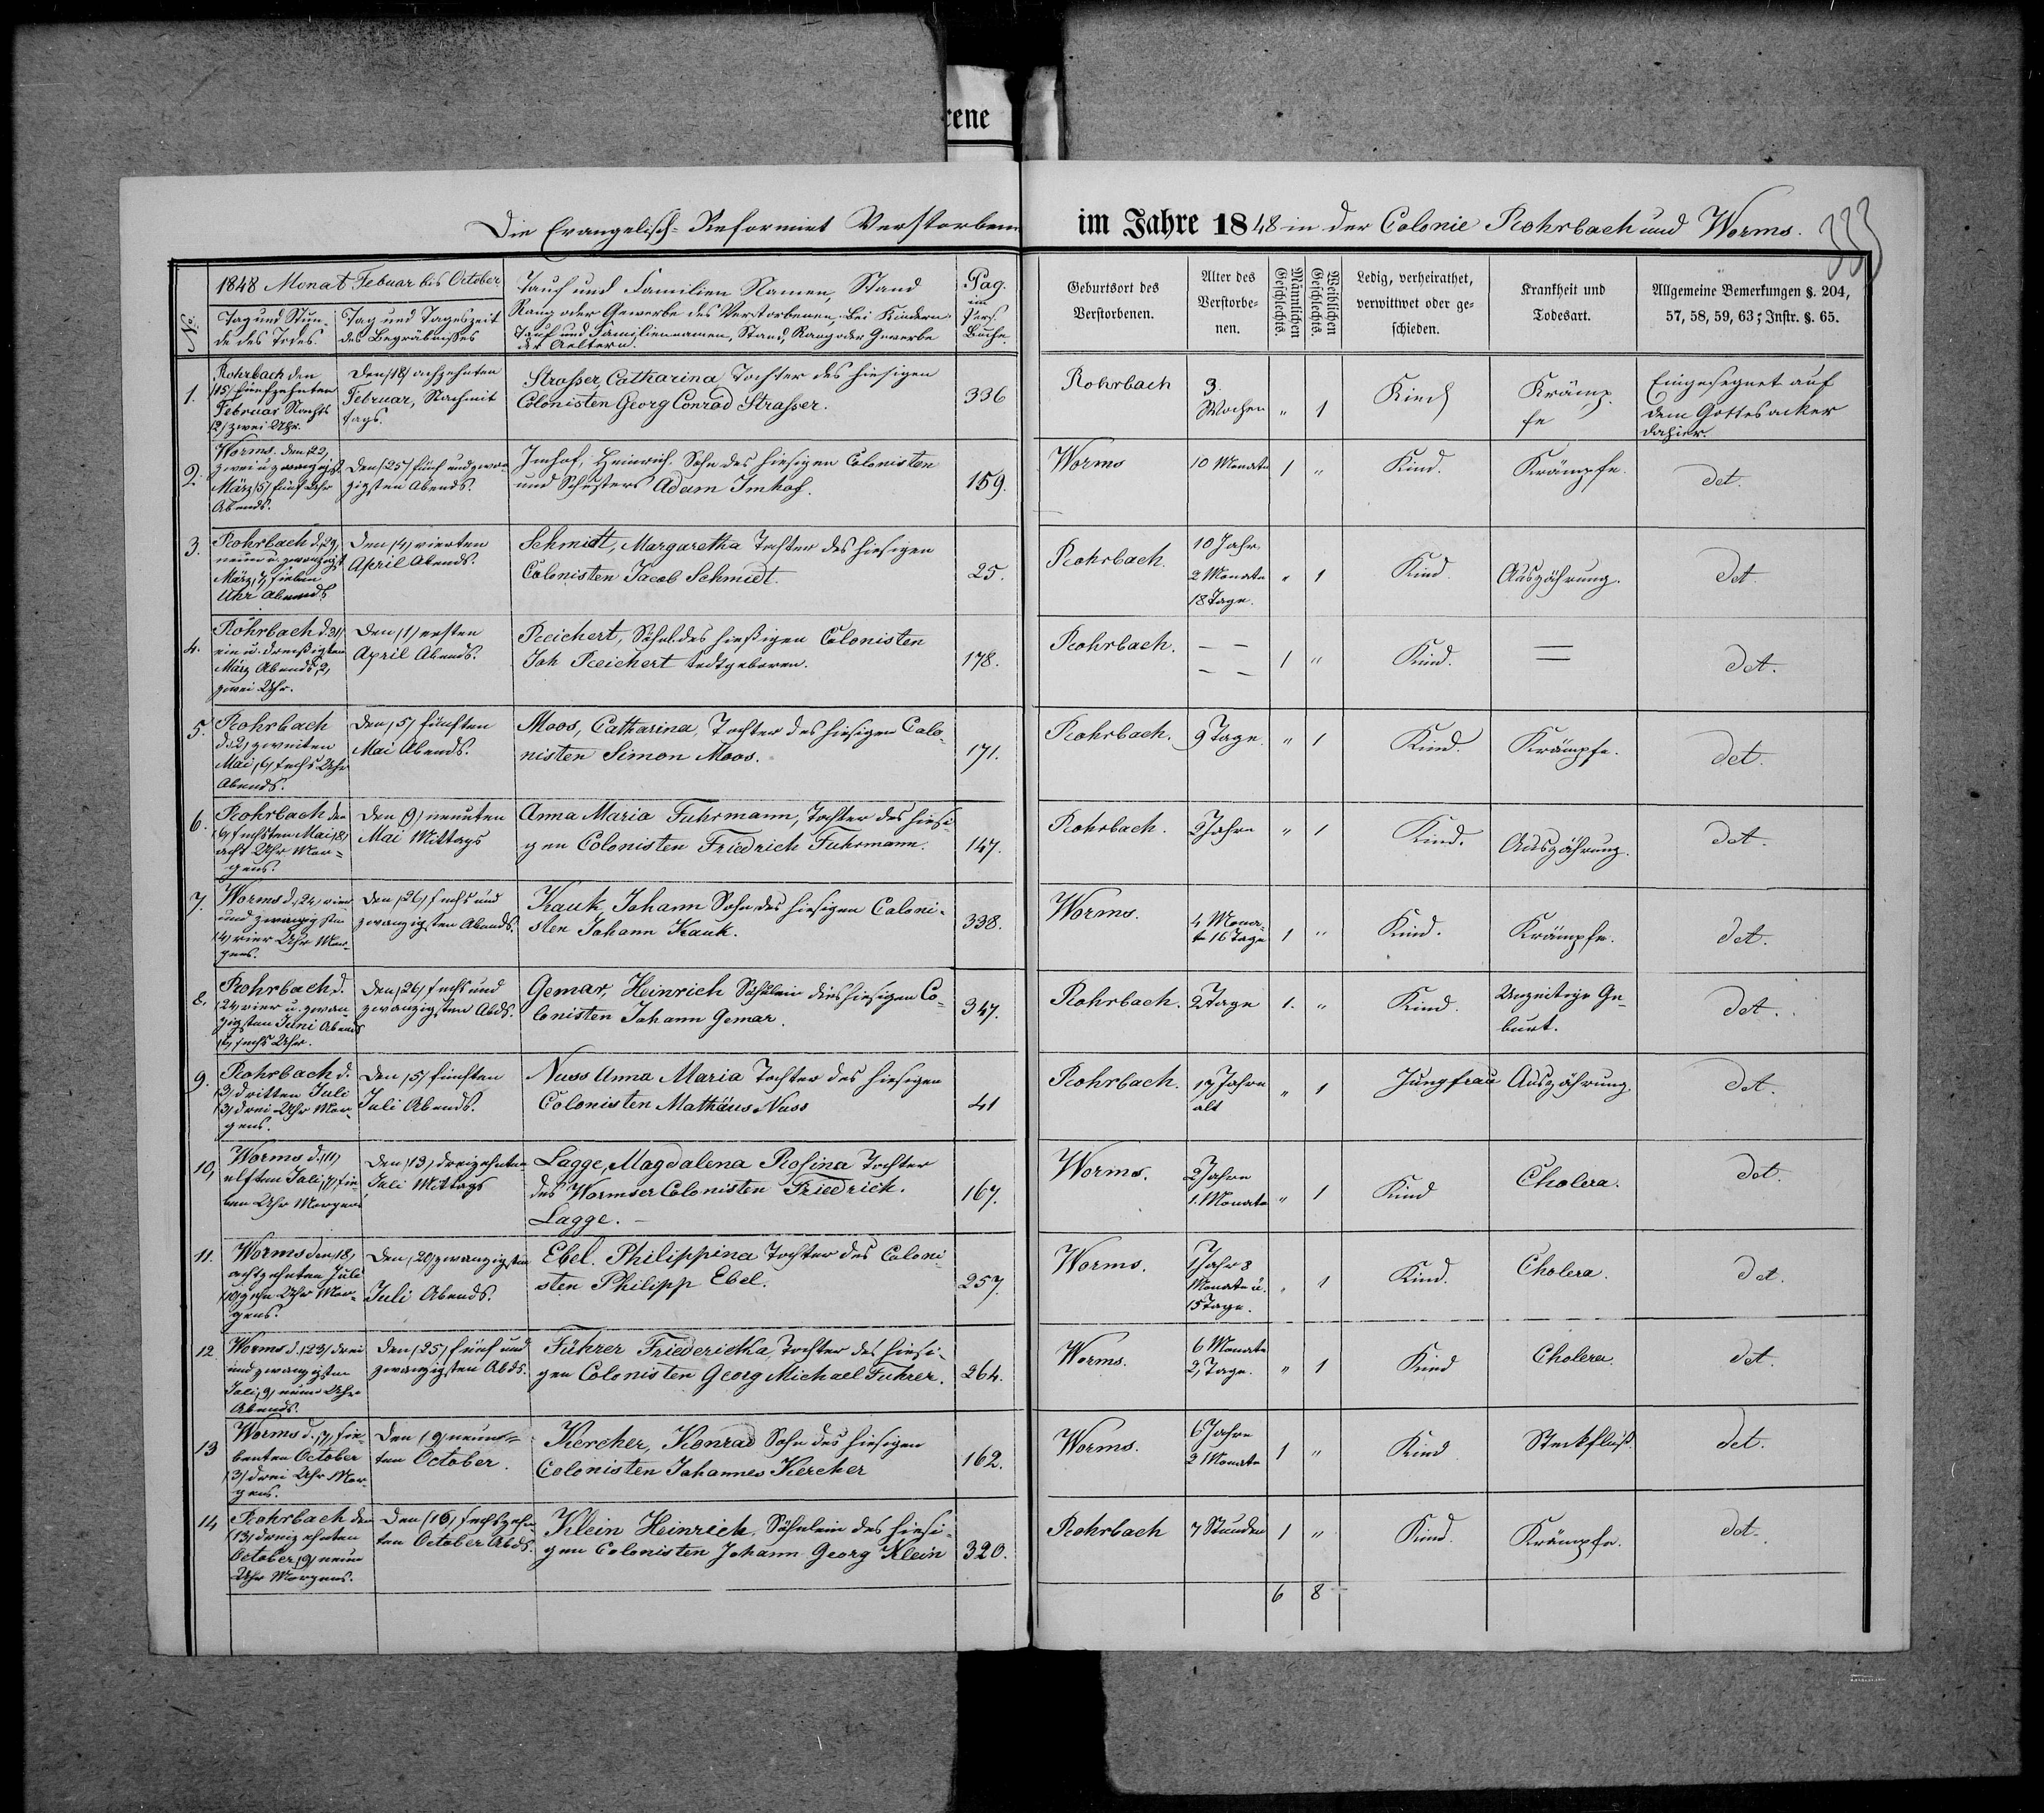 rene
Die Evangelisch-Reformirt Verstorbene im Jahre 1848 in der Colonie Rohrbach und Worms.
333
No.
1848 Monat Febuar bis October
Tag und Stun-
de des Todes.
Tag und Tageszeit
des Begräbnisses
Tauf und Familien Namen, Stand
Rang oder Gewerbe des Verstorbenen, bei Kindern
Tauf und Familiennamen, Stand, Rang oder Gewerbe
der Aeltern.
Pag.
im
Pers.
Buche.
Geburtsort des
Verstorbenen.
Alter des
Verstorbe-
nen.
Männlichen
Geschlechts.
Weiblichen
Geschlechts.
Ledig, verheirathet,
verwittwet oder ge-
schieden.
Krankheit und
Todesart.
Allgemeine Bemerkungen §. 204,
57, 58, 59, 63; Instr. §. 65.
1.
Rohrbach den
(15) fünfzehnten
Februar Nachts
(2) zwei Uhr.
Den (18) achzehnten
Februar, Nachmit
tags.
Strasser, Catharina Tochter des hiesigen
Colonisten Georg Conrad Strasser.
336
Rohrbach
3.
Wochen
" 1
Kind
Krämp-
fe
Eingesegnet auf
dem Gottesacker
dahier.
2.
Worms. den (22)
zwei u. zwanzigst
März (5) fünf Uhr
Abends.
Den (25) fünf und zwan
zigsten Abends.
Imhof, Heinrich. Sohn des hiesigen Colonisten
und Schusters Adam Imhof.
159.
Worms
10 Monate
1 "
Kind.
Krämpfe.
det.
3.
Rohrbach d. 29,
neun u. zwanzigst
März (7) sieben
Uhr Abends
Den (4) vierten
April Abends.
Schmidt, Margaretha Tochter des hiesigen
Colonisten Jacob Schmidt.
25.
Rohrbach.
10 Jahr,
2 Monate
18 Tage.
" 1
Kind
Auszährung.
det.
4.
Rohrbach d. 31)
ein u. dreißigsten
März Abends, 2,
zwei Uhr.
Den (1) ersten
April Abends.
Reichert, Söhnl. des hießigen Colonisten
Joh Reichert todtgeboren.
178.
Rohrbach.
— —
— —
1 "
Kind.
=
det.
5.
Rohrbach
d. 2, zweiten
Mai (6) sechs Uhr
Abends.
Den (5) fünften
Mai Abends.
Moos, Catharina, Tochter des hiesigen Colo-
nisten Simon Moos.
171.
Rohrbach.
9 Tage
" 1
Kind.
Krämpfe.
det.
6.
Rohrbach den
(6) sechsten Mai (8)
acht Uhr Mor-
gens.
Den (9) neunten
Mai Mittags
Anna Maria Fuhrmann, Tochter des hiesi-
gen Colonisten Friedrich Fuhrmann.
147.
Rohrbach.
2 Jahre
" 1
Kind.
Auszährung.
det.
7.
Worms d. 24, vier
und zwanzigsten
(4) vier Uhr Mor-
gens.
Den (26) sechs und
zwanzigsten Abends.
Kauk, Johann Sohn des hiesigen Coloni-
sten Johann Kauk.
338.
Worms.
4 Mona-
te 16 Tage
1 "
Kind.
Krämpfe.
det.
8.
Rohrbach, d.
(24) vier u. zwan-
zigsten Juni Abends
(6) sechs Uhr.
Den (26) sechs und
zwanzigsten Abds.
Gemar, Heinrich Söhnlein des hiesigen Co-
lonisten Johann Gemar.
347.
Rohrbach.
2 Tage
1. "
Kind.
Unzeitige Ge-
burt.
det.
9.
Rohrbach d.
(3) dritten Juli
(3) drei Uhr Mor-
gens.
Den (5) fünften
Juli Abends.
Nuss Anna Maria Tochter des hiesigen
Colonisten Mathäus Nuss
41
Rohrbach.
17 Jahre
alt
" 1
Jungfrau
Auszährung.
det.
10,
Worms d. (11)
elften Juli (7) sie-
ben Uhr Morgens
Den (13) dreizehnten
Juli Mittags
Lagge, Magdalena Rosina Tochter
des Wormser Colonisten Friedrich.
Lagge. —
167.
Worms.
2 Jahre
1. Monate
" 1
Kind
Cholera.
det.
11.
Worms den (18)
achtzehnten Juli
(10) zehn Uhr Mor-
gens.
Den (20) zwanzigsten
Juli Abends.
Ebel. Philippina Tochter des Coloni-
sten Philipp Ebel.
257.
Worms.
1 Jahr 8
Monate u.
15 Tage.
" 1
Kind.
Cholera.
det.
12
Worms d. (23) drei
und zwanzigsten
Juli (9) neun Uhr
Abends.
Den (25) fünf und
zwanzigsten Abds.
Führer Friederietha, Tochter des hiesi-
gen Colonisten Georg Michael Führer.
264.
Worms.
6 Monate
2, Tage.
" 1
Kind
Cholera.
det.
13
Worms d. (7) sie-
benten October
(3) drei Uhr Mor-
gens.
Den (9) neun-
ten October.
Kercher, Konrad Sohn des hiesigen
Colonisten Johannes Kercher
162.
Worms.
6 Jahre
2 Monate
1 "
Kind
Steckfluß.
det.
14
Rohrbach den
(13) dreizehnten
October (9) neun
Uhr Morgens.
Den (16) sechszehn-
ten October Abds.
Klein Heinrich, Söhnlein des hiesi-
gen Colonisten Johann Georg Klein
320.
Rohrbach
7 Stunden
1 "
Kind.
Krämpfe.
det.
6 8